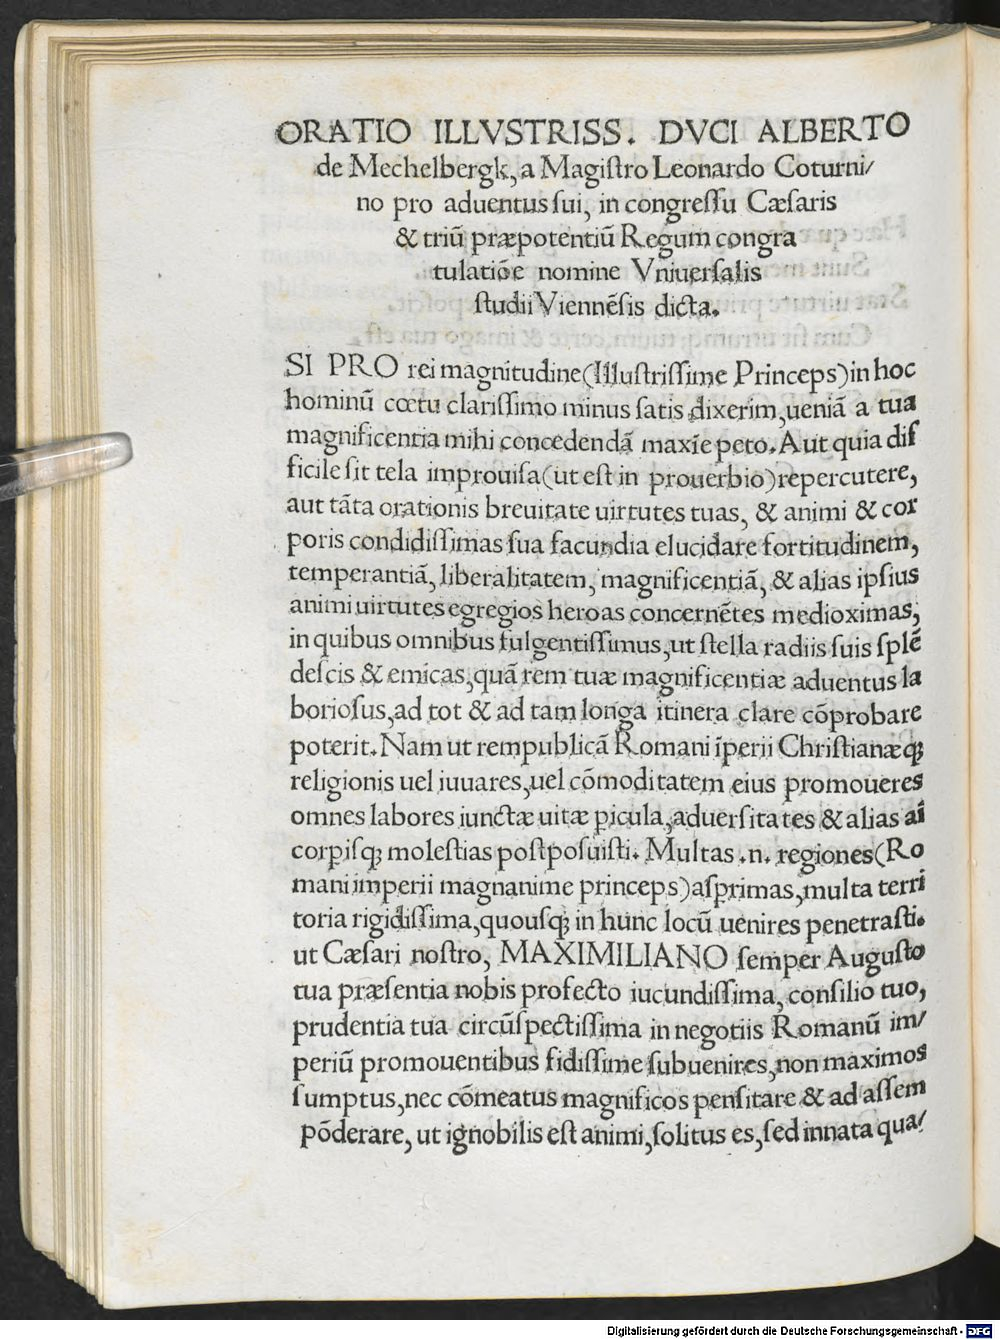 ORATIO ILLVSTRISS. DVCI ALBERTO
de Mechelbergk, a Magiſtro Leonardo Coturni/
no pro aduentus ſui, in congreſſu Cæſaris
& triū præpotentiū Regum congra
tulatiōe nomine Vniuerſalis
ſtudii Viennēſis dicta.
SI PRO rei magnitudine(Illuſtriſſime Princeps)in hoc
hominū cœtu clariſſimo minus ſatis dixerim,ueniā a tua
magnificentia mihi concedendā maxīe peto.Aut quia diſ
ficile ſit tela improuiſa(ut eſt in prouerbio)repercutere,
aut tāta orationis breuitate uirtutes tuas, & animi & cor
poris condidiſſimas ſua facundia elucidare fortitudinem,
temperantiā, liberalitatem, magnificentiā, & alias ipſius
animi uirtutes egregios heroas concernētes medioximas,
in quibus omnibus fulgentiſſimus,ut ſtella radiis ſuis ſplē
deſcis & emicas,quā rem tuæ magnificentiæ aduentus la
borioſus,ad tot & ad tam longa itinera clare cōprobare
poterit.Nam ut rempublicā Romani īperii Chriſtianæqꝫ
religionis uel iuuares,uel cōmoditatem eius promoueres
omnes labores iunctæ uitæ picula,aduerſitates & alias aī
corpiſqꝫ moleſtias poſtpoſuiſti. Multas .n. regiones(Ro
mani imperii magnanime princeps)aſprimas,multa terri
toria rigidiſſima,quouſqꝫ in hunc locū uenires penetraſti.
ut Cæſari noſtro, MAXIMILIANO ſemper Auguſto
tua præſentia nobis profecto iucundiſſima, conſilio tuo,
prudentia tua circūſpectiſſima in negotiis Romanū im/
periū promouentibus fidiſſime ſubuenires,non maximos
ſumptus,nec cōmeatus magnificos penſitare & ad aſſem
pōderare, ut ignobilis eſt animi,ſolitus es,ſed innata qua/
Digitalisierung gefördert durch die Deutsche Forschungsgemeinschaft - DFG